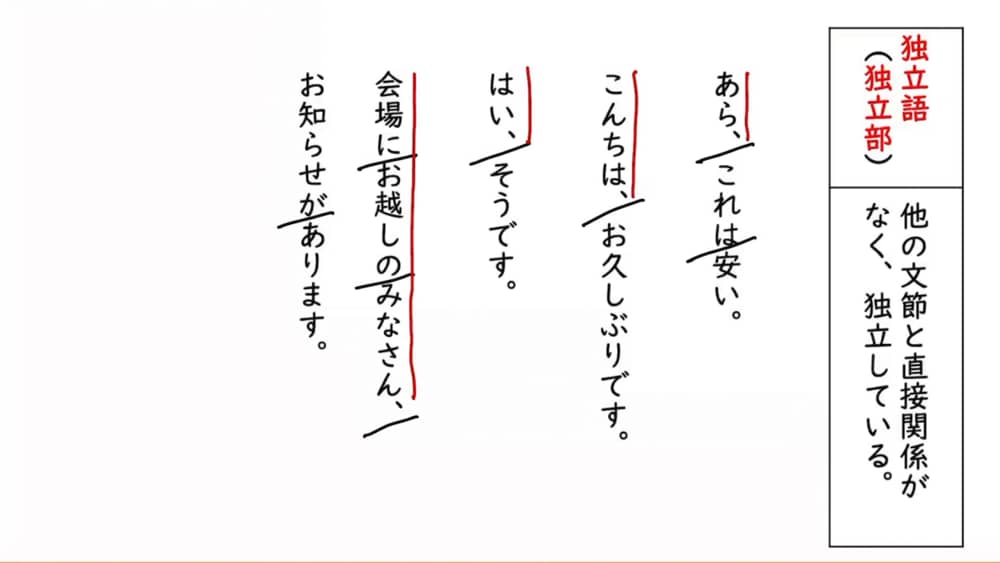 独立語
（独立部）
他の文節と直接関係が
なく、独立している。
あら、これは安い。
こんちは、お久しぶりです。
はい、そうです。
会場にお越しのみなさん、
お知らせがあります。